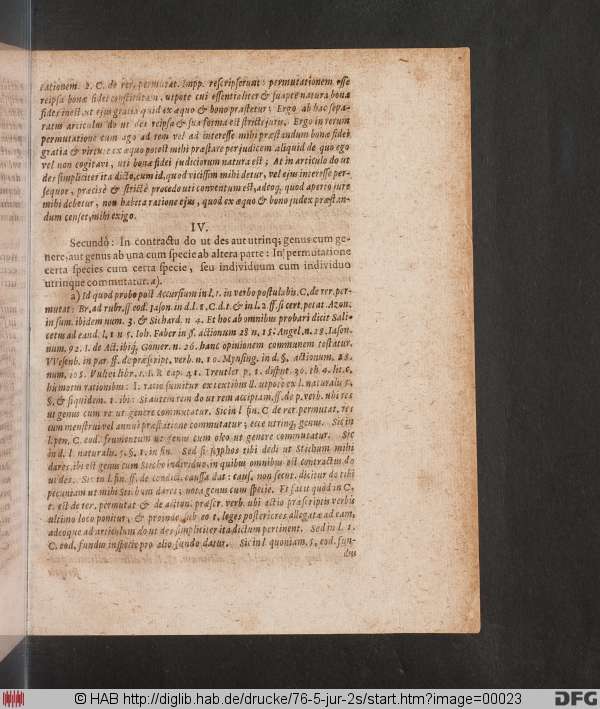 rationem. 2. C. de rer. permutat. Impp. rescripserunt: permutationem esse
reipsa bonæ fidei constitutam, utpote cui essentialiter & suapte natura bona
fides inest, ut ejus gratia quid ex æquo & bono præstetur; Ergo ab hac sepa-
ratus articulus do ut des reipsa & sua forma est stricti juris. Ergo in rerum
permutatione cum ago ad rem vel ad interesse mihi præstandum bonæ fidei
gratia & virtute ex æquo potest mihi præstare per judicem aliquid de quo ego
vel non cogitavi, uti bonæ fidei judiciorum natura est; At in articulo do ut
des simpliciter ita dicto, cum id, quod vicissim mihi detur, vel ejus interesse per-
sequor, præcisè & strictè procedo uti conventum est, adeoq, quod aperto jure
mihi debetur, non habita ratione ejus, quod ex æquo & bono judex præstan-
dum censet, mihi exigo.
IV.
Secundò: In contractu do ut des aut utrinq; genus cum ge-
nere, aut genus ab una cum specie ab altera parte: In permutatione
certa species cum certa specie, seu individuum cum individuo
utrinque commutatur. a).
a) Id quod probo post Accursium in l. 1. in verbo postulabis. C. de rer. per-
mutat: Br. ad rubr. ff. eod. Jason. in d. l. 1. C. d. t. & in l. 2 ff. si cert. petat. Azon.
in sum. ibidem num. 3. & Sichard. n 4. Et hoc ab omnibus probari dicit Sali-
cetus ad eand. l. 1 n 5. Joh. Faber in §. actionum 28 n. 15. Angel. n. 28. Jason.
num. 92. J. de Act. ibiq, Gomez. n. 26. hanc opinionem communem testatur.
VVesenb. in par. ff. de præscript. verb. n. 10. Mynsing. in d. §. actionum. 28.
num. 105. Vultei libr. 1. J. R. cap. 41. Treutler p. 1. disput. 30. th 4. lit. c.
his motin rationibus: 1. ratio sumitur ex textibus ll. utpote ex l. naturalis 5.
§. & siquidem. 1. ibi: Si autem rem do ut rem accipiam. ff. de p. verb. ubi res
ut genus cum re ut genere commutatur. Sic in l fin. C de rer. permutat, res
cum menstrui vel annui præstatione commutatur; ecce utrinq, genus. Sic in
l. pen. C. eod. frumentum ut genus cum oleo ut genere commutatur. Sic
in d. l. naturalis. 5. §. 1. in fin. Sed si scyphos tibi dedi ut Stichum mihi
dares. ibi est genus cum Sticho individuo, in quibus omnibus est contractus do
ut des. Sic in l. fin. ff. de condict. caussa dat: caus. non secut. dicitur do tibi
pecuniam ut mihi Stichum dares; nota genus cum specie. Et facit quod in C.
t. est de rer. permutat & de action. præscr. verb. ubi actio præscriptis verbis
ultimo loco ponitur, & proinde sub eo t. leges posteriores allegatæ ad eam,
adeoque ad articulum do ut des simpliciter ita dictum pertinent. Sed in l. 1.
C. eod. fundus in specie pro alio fundo datur. Sic in l quoniam. 5. eod. fun-
dus
© HAB http://diglib.hab.de/drucke/76-5-jur-2s/start.htm?image=00023
DFG